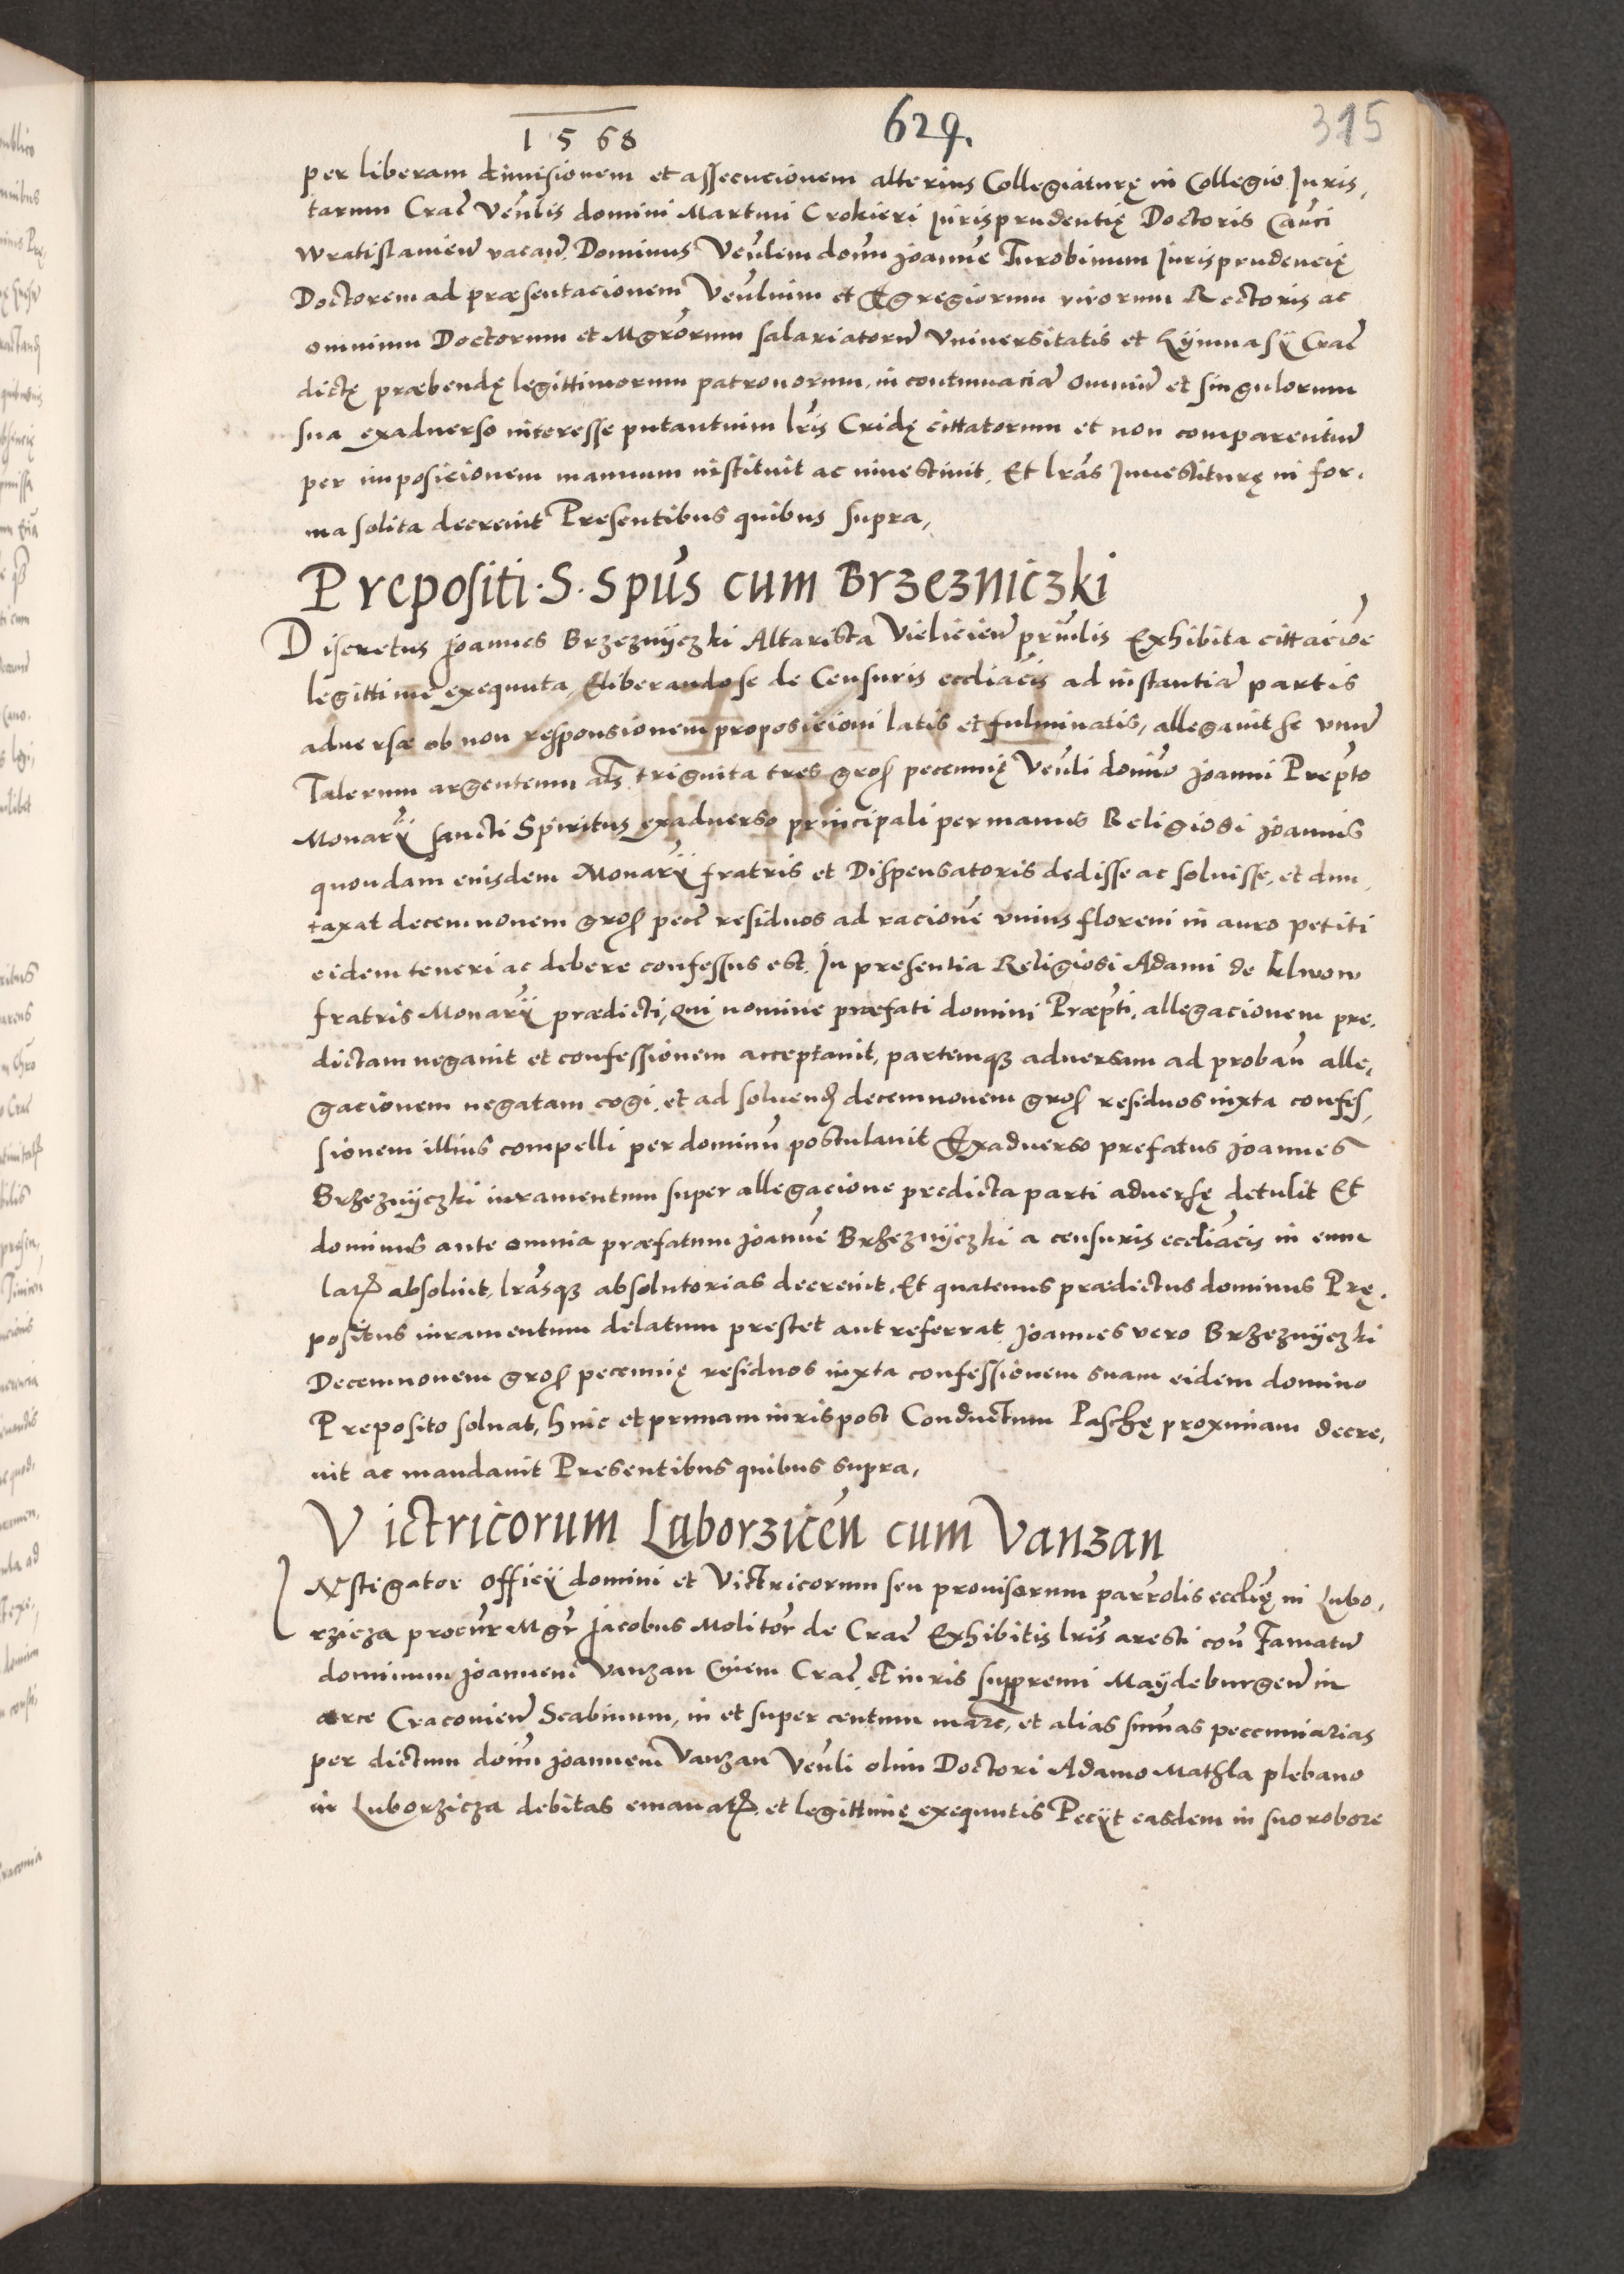 1568
629.
315
per liberam dimisionem et assecucionem alterius Collegiaturę in Collegio Juris,
tarum Crac̄ Veñlis domini Martini Crokieri Jurisprudentię Doctoris Cañci
Wratislavień vacañ. Dominus Veñlem doīm Joannē Turobinum Jurisprudencię
Doctorem ad præsentacionem Veñlium et Egregiorum virorum Rectoris ac
omnium Doctorum et Mgr̄orum salariatorū Vniversitatis et Gÿmnasÿ Crac̄
dictę præbendę legittimorum patronorum, in contumaciā omniū et singulorum
sua exadverso interesse putantium l̄ris Cridę cittatorum et non comparentiū
per imposicionem manuum instituit ac investivit. Et l̄ras Investiturę in for,
ma solita decrevit Presentibus quibus supra,
Prepositi · S · Spūs cum Brzezniczki
Discretus Joannes Brzeznÿczki Altarista Vielicieñ prīnlis Exhibita cittaciōe
legittime exequuta, Eliberando se de Censuris eccl̄iacis ad instantiā partis
adversæ ob non responsionem proposicioni latis et fulminatis, allegavit se vnū
Talerum argenteum al̄s triginta tres gros pecunię Veñli domīo Joanni Prep̄to
Monar̄ÿ sancti Spiritus exadverso principali per manus Religiosi Joannis
quondam eiusdem Monar̄ÿ fratris et Dispensatoris dedisse ac soluisse, et dun,
taxat decemnovem gros pec̄ residuos ad racionē vnius floreni in auro petiti
eidem teneri ac debere confessus est. In presentia Religiosi Adami de Klwow
fratris Monar̄ÿ prædicti, Qui nomine præfati domini Præp̄ti, allegacionem pre,
dictam negavit et confessionem acceptavit, partemqȝ adversam ad probañ alle,
gacionem negatam cogi, et ad soluend decemnovem gros residuos iuxta confes,
sionem illius compelli per dominū postulavit Exadverso prefatus Joannes
Brzeznÿczki iuramentum super allegacione predicta parti adversę detulit Et
dominus ante omnia præfatum Joannē Brzeznÿczki a censuris eccl̄iacis in eum
lat absoluit, l̄rasqȝ absolutorias decrevit. Et quatenus prædictus dominus Prę,
positus iuramentum delatum prestet aut referrat, Joannes vero Brzeznÿczki
Decemnovem gros pecunię residuos iuxta confessionem suam eidem domino
Preposito soluat, hinc et primam iuris post Conductum Paschę proximam decre,
vit ac mandavit Presentibus quibus supra,
Victricorum Luborzicēn cum Vanzan
INstigator officÿ domini et Victricorum seu provisorum parr̄olis eccl̄ię in Lubo,
rzicza procūr Mgr̄ Jacobus Molitor de Crac̄ Exhibitis l̄ris aresti coñ Famatū
dominum Joannem Vanzan Ciuem Crac̄ et iuris suppremi Maydeburgeñ in
arce Cracovieñ Scabinum, in et super centum marc̄, et alias sum̄as peccuniarias
per dictum doīm Joannem Vanzan Veñli olim Doctori Adamo Mathla plebano
in Luborzicza debitas emanat et legittimę exequutis Pecÿt easdem in suo robore